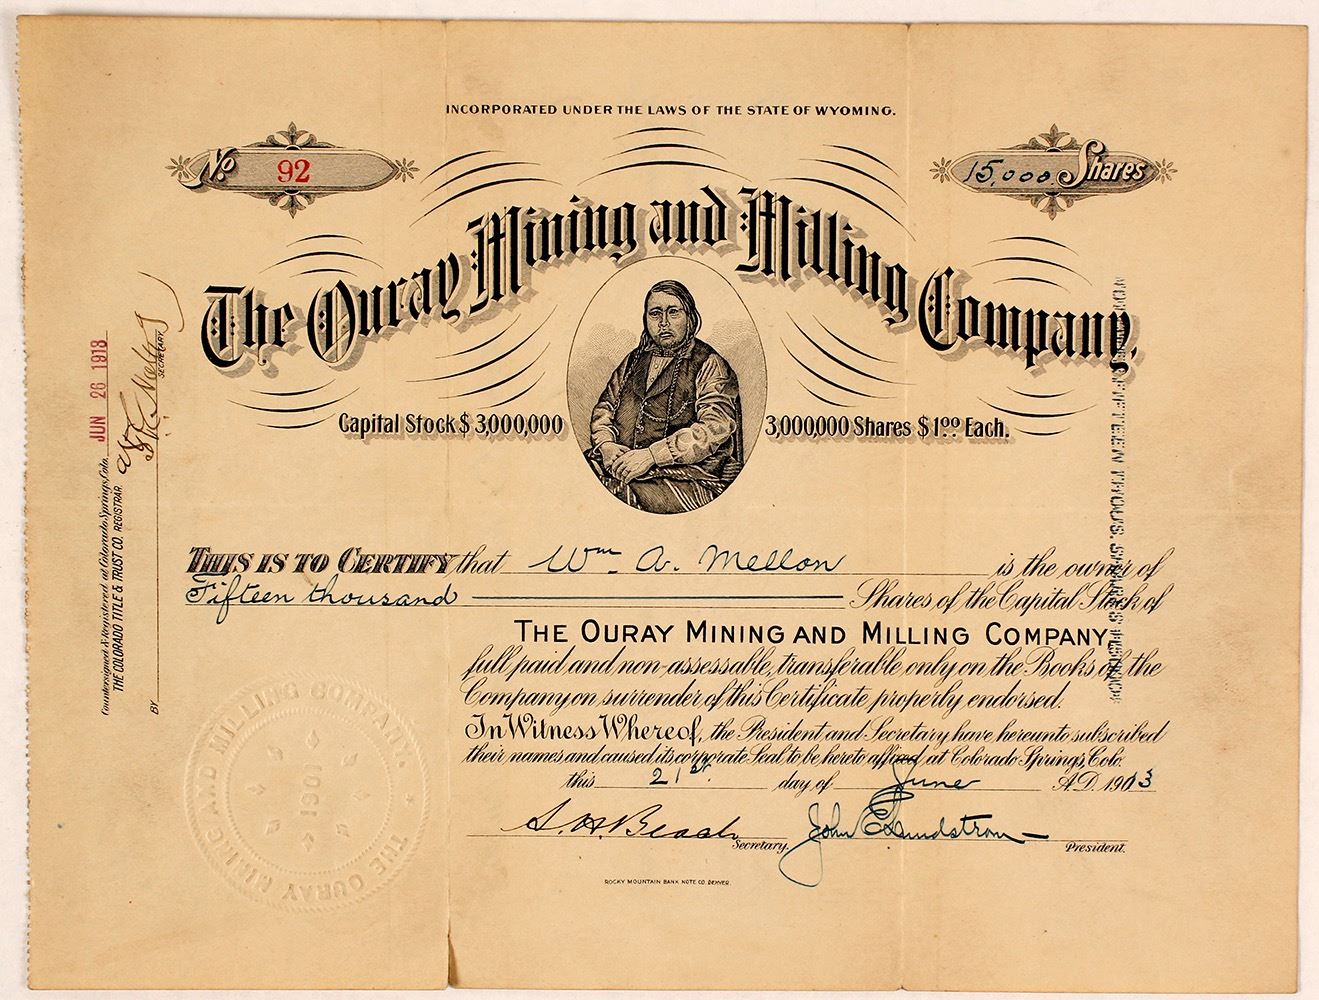 INCORPORATED UNDER THE LAWS OF THE STATE OF WYOMING.
No. 92
15,000 Shares
The Ouray Mining and Milling Company.
Capital Stock $3,000,000
3,000,000 Shares $1.00 Each.
THIS IS TO CERTIFY that Wm. A. Mellon is the owner of
Fifteen thousand Shares of the Capital Stock of
THE OURAY MINING AND MILLING COMPANY
full paid and non-assessable, transferable only on the Books of the
Company on surrender of this Certificate properly endorsed.
In Witness Whereof, the President and Secretary have hereunto subscribed
their names and caused its corporate Seal to be hereto affixed at Colorado Springs, Colo.
this 21st day of June A.D. 1913
S. H. Beach Secretary. John E. Lundstrom President.
ROCKY MOUNTAIN BANK NOTE CO. DENVER.
Countersigned & Registered at Colorado Springs, Colo. JUN 26 1913
THE COLORADO TITLE & TRUST CO. REGISTRAR
BY SECRETARY
THE OURAY MINING AND MILLING COMPANY.
1901